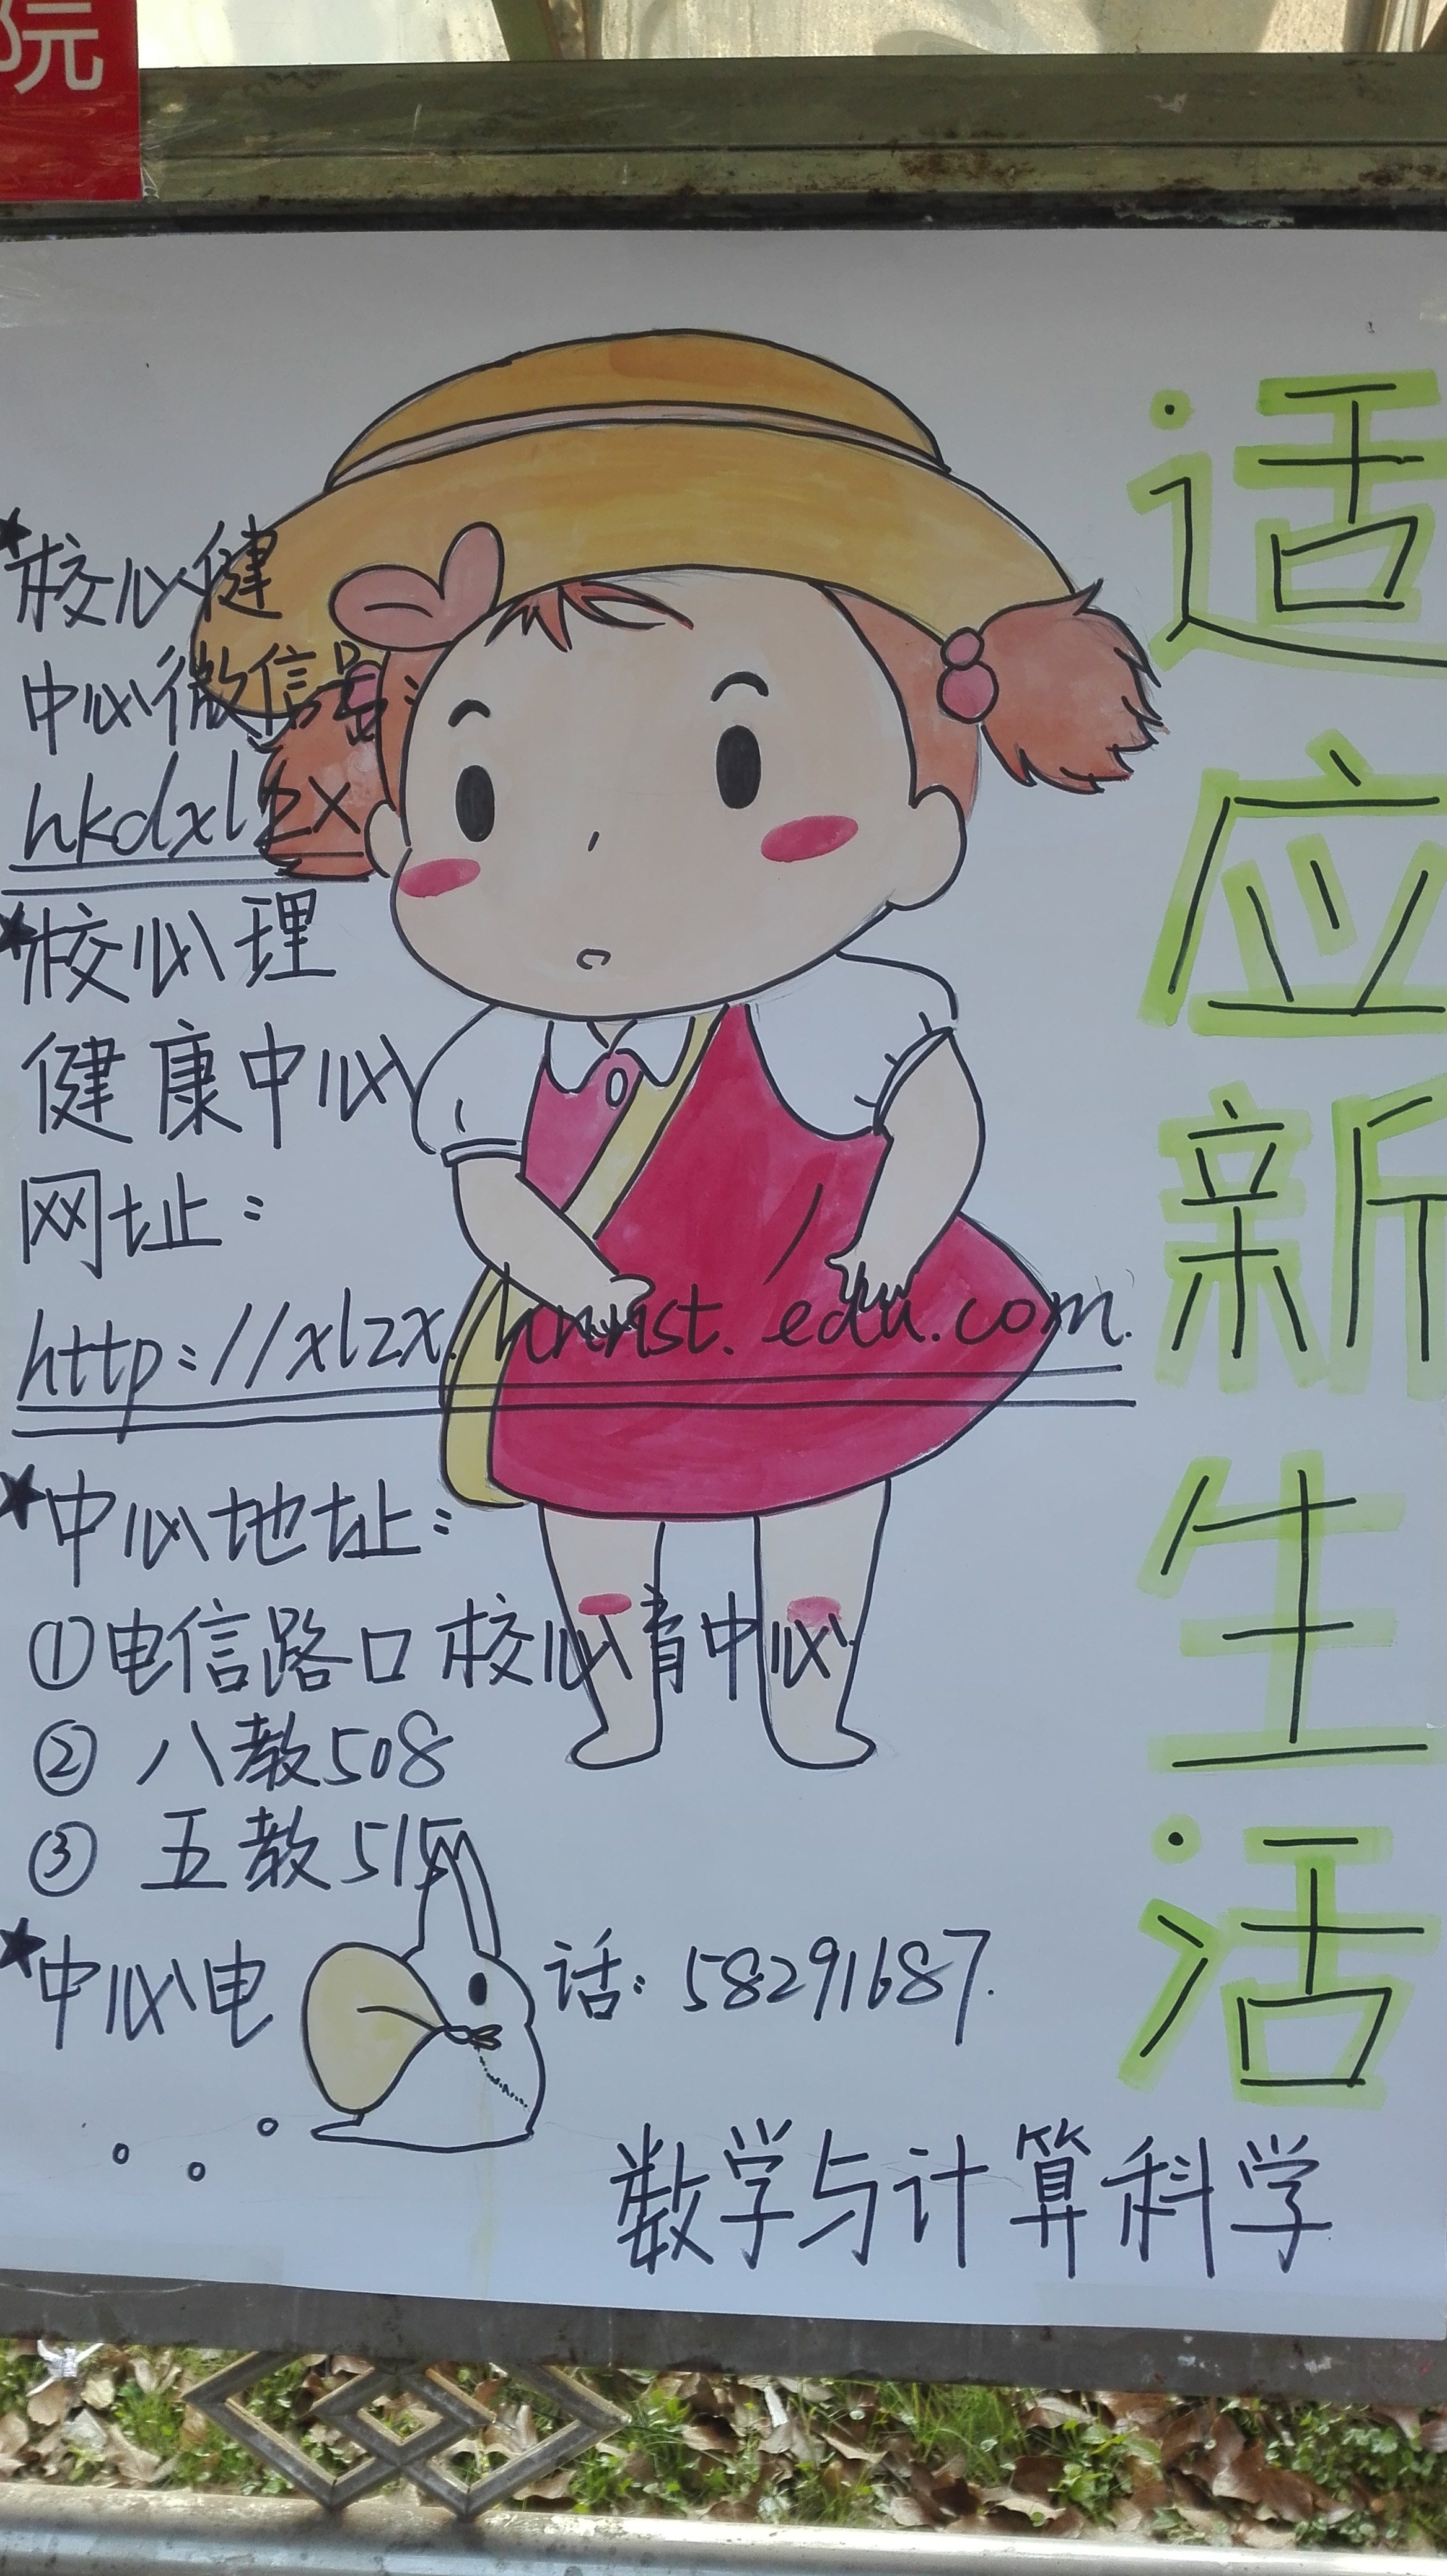 院
适应新生活
★校心健
中心微信号:
hkdxlzx
★校心理
健康中心
网址:
http://xlzx.hnust.edu.com.
★中心地址:
①电信路口校心育中心
② 八教508
③ 五教515
★中心电话: 58291687.
数学与计算科学